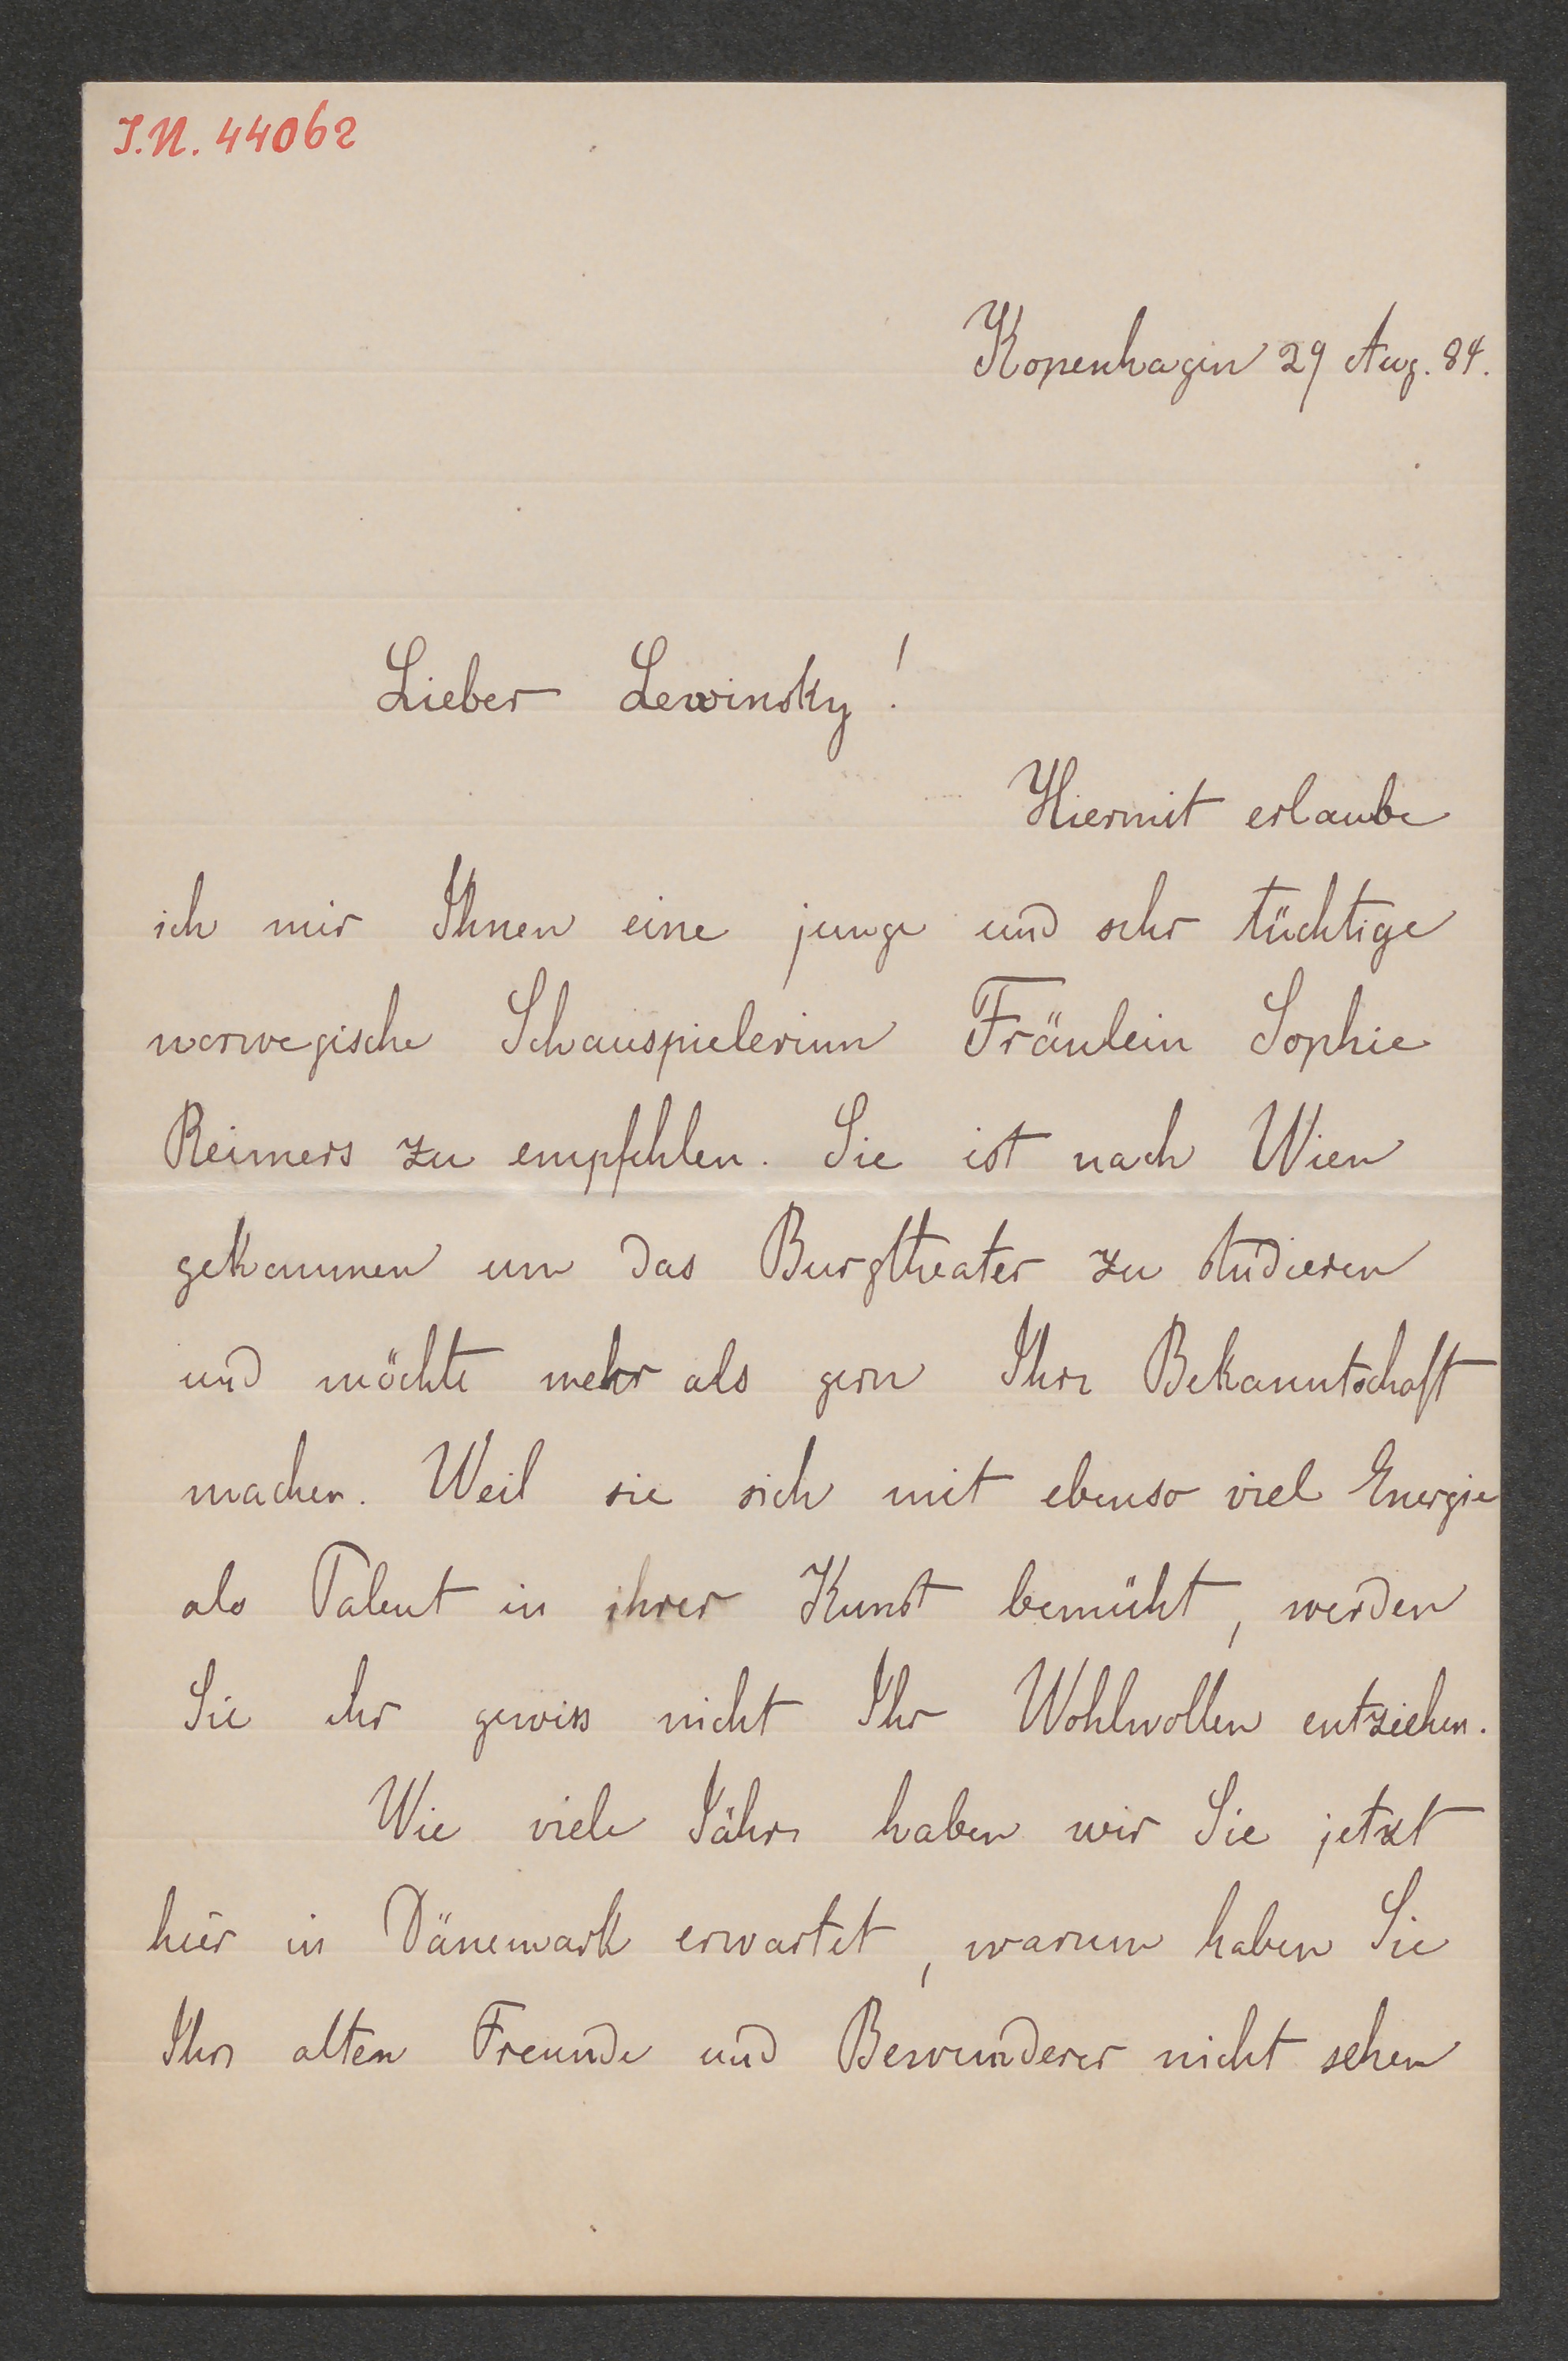 I.N. 44062
Kopenhagen 29 Aug. 84.
Lieber Lewinsky!
Hiermit erlaube
ich mir Ihnen eine junge und sehr tüchtige
norwegische Schauspielerinn Fräulein Sophie
Reimers zu empfehlen. Sie ist nach Wien
gekommen um das Burgtheater zu studieren
und möchte mehr als gern Ihre Bekanntschaft
machen. Weil sie sich mit ebenso viel Energie
als Talent in ihrer Kunst bemüht, werden
Sie ihr gewiss nicht Ihr Wohlwollen entziehen.
Wie viele Jähre haben wir Sie jetzt
hier in Dänemark erwartet, warum haben Sie
Ihre alten Freunde und Bewunderer nicht sehen